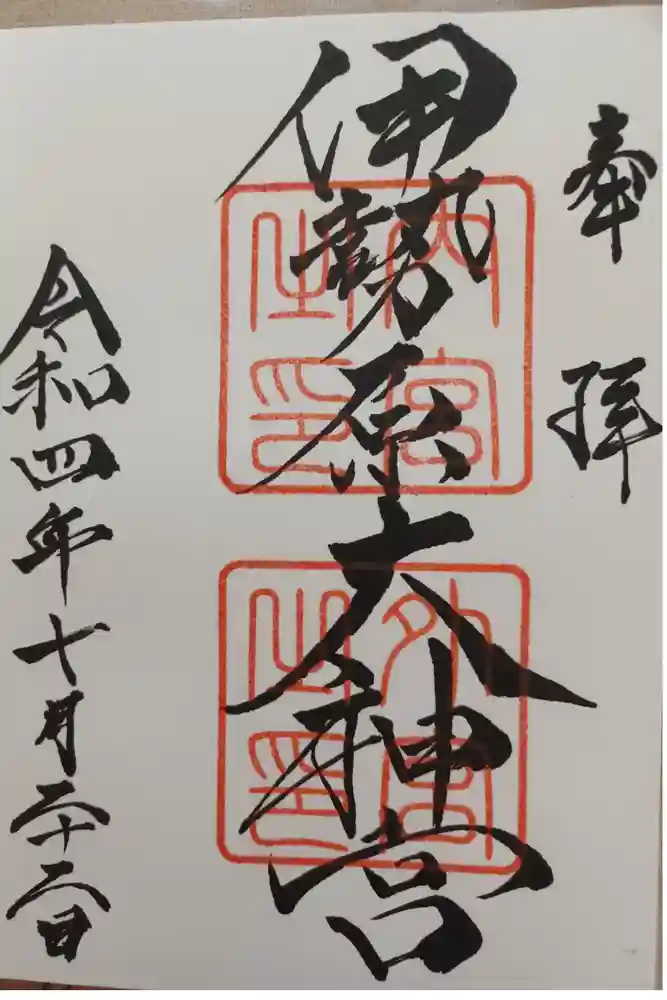 奉拝
伊勢原大神宮
内宮之印
外宮之印
令和四年十月二十二日